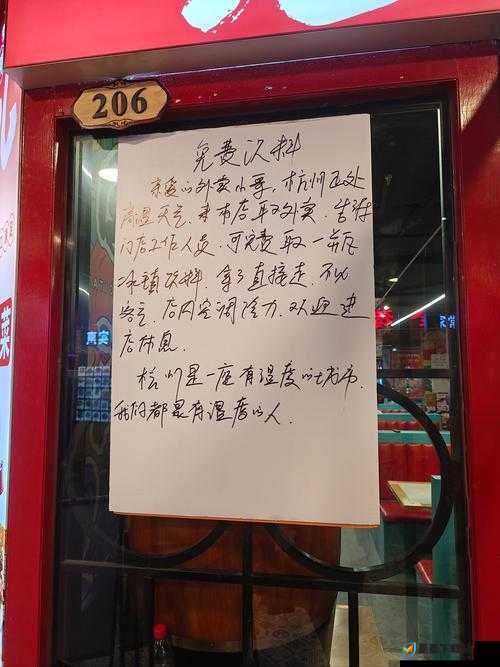 206
免费饮料
亲爱的外卖小哥，杭州正处
高温天气，来本店取外卖，告诉
门店工作人员，可免费取一瓶
冰镇饮料，拿了直接走，不必
客气，店内空调给力，欢迎进
店休息.
杭州是一座有温度的城市.
我们都是有温度的人.
菜